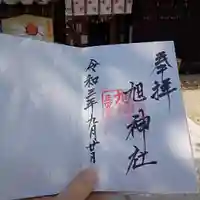 奉拝
旭神社
令和三年九月廿日